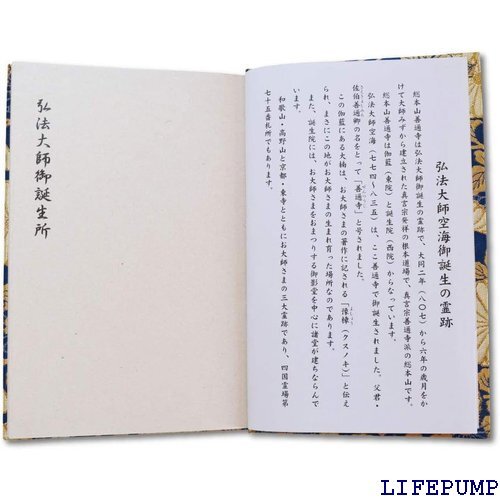 弘法大師空海御誕生の霊跡
総本山善通寺は弘法大師御誕生の霊跡で、大同二年（八〇七）から六年の歳月をか
けて大師みずから建立された真言宗発祥の根本道場で、真言宗善通寺派の総本山です。
総本山善通寺は伽藍（東院）と誕生院（西院）からなっています。
弘法大師空海（七七四～八三五）は、ここ善通寺で御誕生されました。父君・
佐伯善通卿の名をとって「善通寺」と号されました。
この伽藍にある大楠は、お大師さまの著作に記される「豫樟（クスノキ）」と伝え
られ、まさにこの地がお大師さまの生まれ育った場所なのであります。
また、誕生院には、お大師さまをおまつりする御影堂を中心に諸堂が建ちならんで
います。
和歌山・高野山と京都・東寺とともにお大師さまの三大霊跡であり、四国霊場第
七十五番札所でもあります。
弘法大師御誕生所
LIFEPUMP